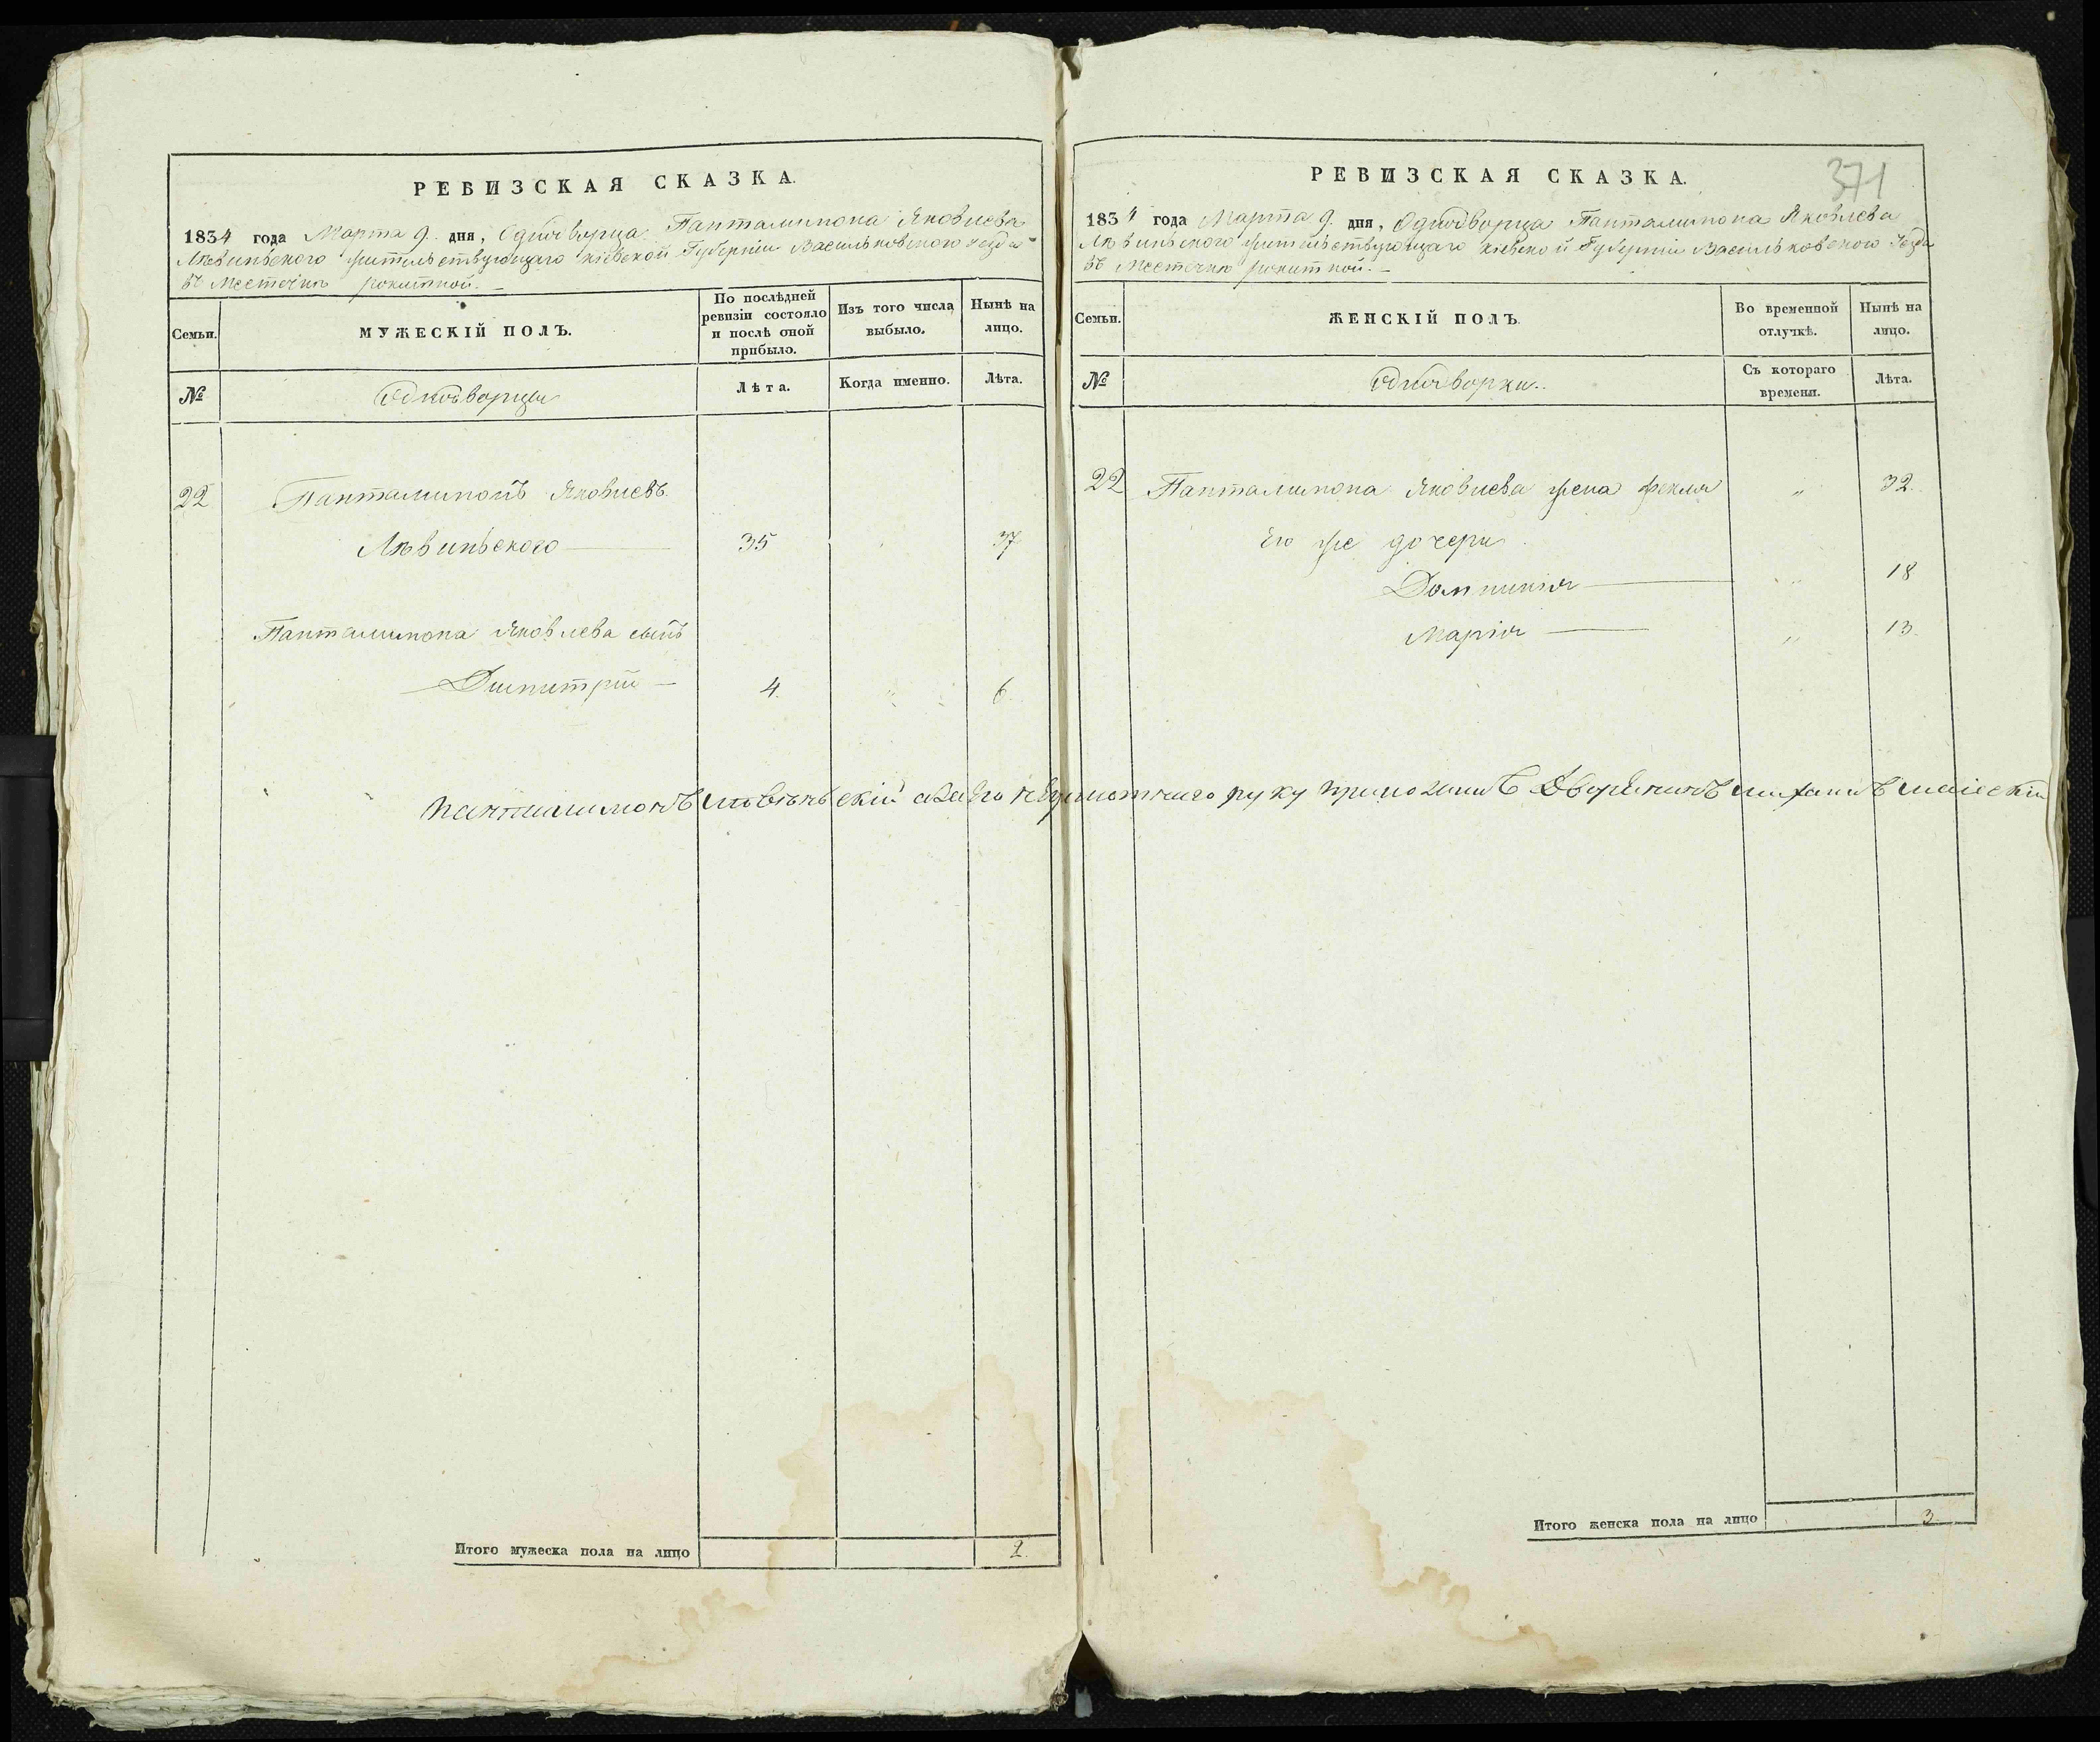 РЕВИЗСКАЯ СКАЗКА.
1834 года Марта 9. дня, Однодворца Панталимона Яковлева
Лѣвиньского жительствующаго Кіевской Губерніи Васильковского уезда
въ Местечкѣ Рокитной.
Семьи.
МУЖЕСКІЙ ПОЛЪ.
По послѣдней ревизіи состояло и послѣ оной прибыло.
Изъ того числа выбыло.
Нынѣ на лицо.
№
Однодворцы
Лѣта.
Когда именно.
Лѣта.
22 Панталимонъ Яковлевъ
Лѣвиньского 35 37
Панталимона Яковлева сынъ
Димитрій 4. " 6.
Итого мужеска пола на лицо 2.
371
РЕВИЗСКАЯ СКАЗКА.
1834 года Марта 9. дня, Однодворца Панталимона Яковлева
Лѣвиньского жительствующаго Кіевской Губерніи Васильковского Уезда
въ Местечкѣ Рокитной.
Семьи.
ЖЕНСКІЙ ПОЛЪ.
Во временной отлучкѣ.
Нынѣ на лицо.
№
Однодворки.
Съ котораго времени.
Лѣта.
22 Панталимона Яковлева жена Фекла " 32.
Его же дочери
Домникія " 18
Марія " 13.
Пантилимонъ Лѣвѣньскій а за Его неграмотнаго руку приложилъ Дворенинъ
Итого женска пола на лицо 3.